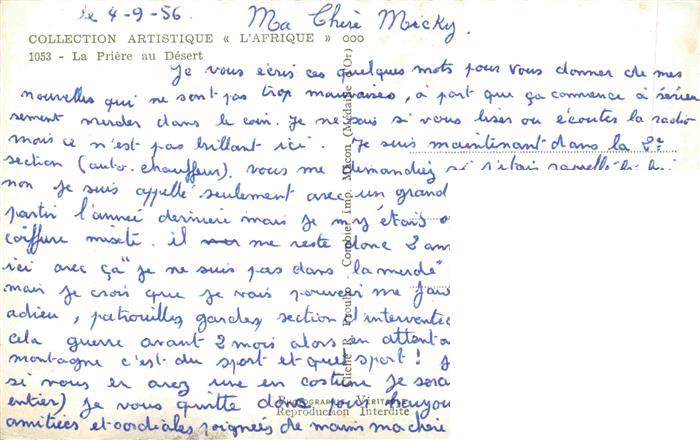 le 4-9-56. Ma Chère Micky.
COLLECTION ARTISTIQUE « L'AFRIQUE » ooo
1053 - La Prière au Désert
Je vous écris ces quelques mots pour vous donner de mes
nouvelles qui ne sont pas trop mauvaises, à part que ça commence à sérieu
sement merder dans le coin. Je ne sais si vous lisez ou écoutez la radio
mais ce n'est pas brillant ici. Je suis maintenant dans la 2e
section (auto. chauffeur). vous me demandiez si j'étais rappelé
non je suis appellé seulement avec un grand
partir l'année dernière mais je m'y étais
coiffure misété. il me reste donc 2 ans
ici avec ça "je ne suis pas dans la merde"
mais je crois que je vais pouvoir me fais
adieu, patrouilles gardes, section d'interventio
cela guerre avant 2 mois alors en attent
montagne c'est du sport et quel sport! J
si vous en avez une en costume je sera
entier) Je vous quitte donc
amitiées et cordiales poignées de mains ma chère
Cliché R. Prouho - Combier Imp. Mâcon (Médaille d'Or)
PHOTOGRAPHIE VÉRITABLE
Reproduction Interdite